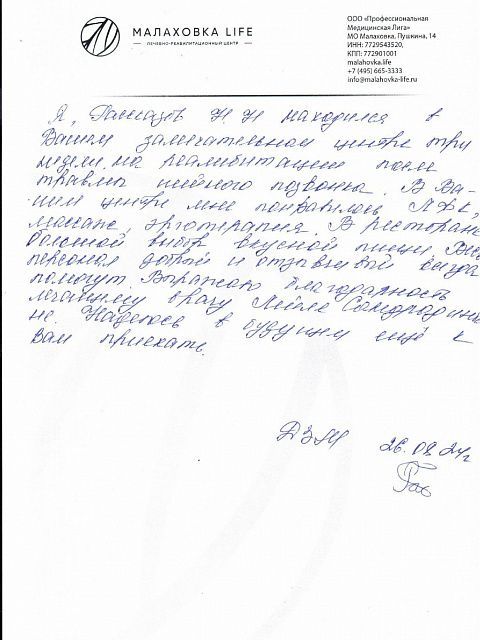 MALAХОВКА LIFE
ЛЕЧЕБНО-РЕАБИЛИТАЦИОННЫЙ ЦЕНТР
ООО «Профессиональная
Медицинская Лига»
МО Малаховка, Пушкина, 14
ИНН: 7729543520,
КПП: 772901001
malahovka.life
+7 (495) 665-3333
info@malahovka-life.ru
Я, Рассказов Н Н находился в
Вашем замечательном центре три
недели на реабилитации после
травмы шейного позвонка. В Ва-
шем центре мне понравилось ЛФК,
массаж, эрготерапия. В ресторане
большой выбор вкусной пищи. Весь
персонал добрый и отзывчивый всегда
помогут. Выражаю благодарность
лечащему врачу Лейле
не. Надеюсь в будущем ещё к
вам приехать.
ДЗМ 26.08 24г